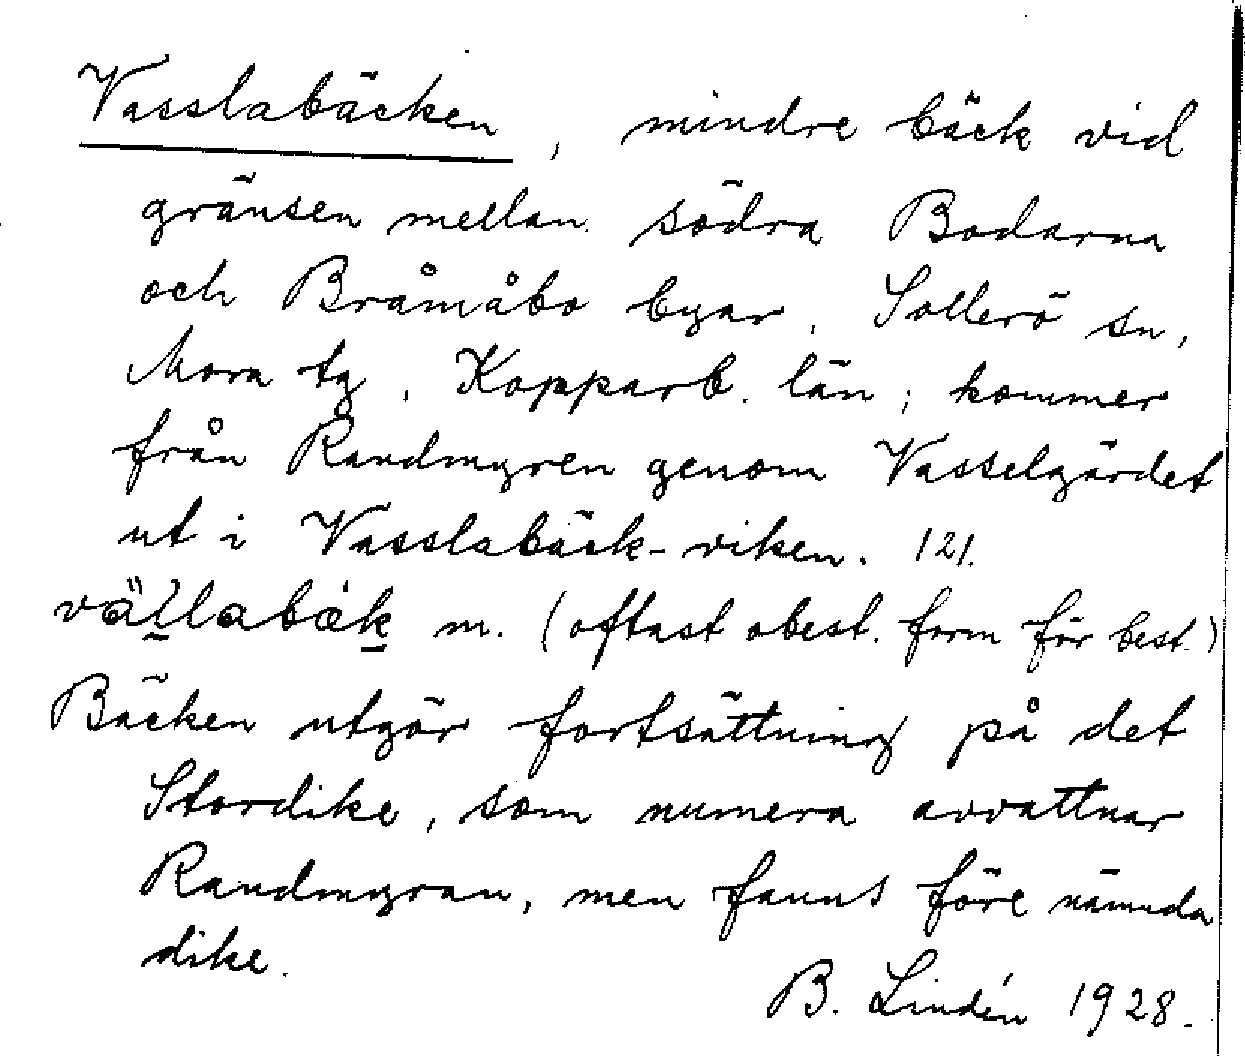 Vasslabäcken, mindre bäck vid
gränsen mellan södra Bodarna
och Bråmåbo byar, Sollerö sn,
Mora tg, Kopparb. län; kommer
från Randmyren genom Vasselgärdet
ut i Vasslabäck-viken. 121.
m. (oftast obest. form för best.)
Bäcken utgör fortsättning på det
Stordike, som numera avvattnar
Randmyran, men fanns före nämnda
dike.
B. Lindén 1928.